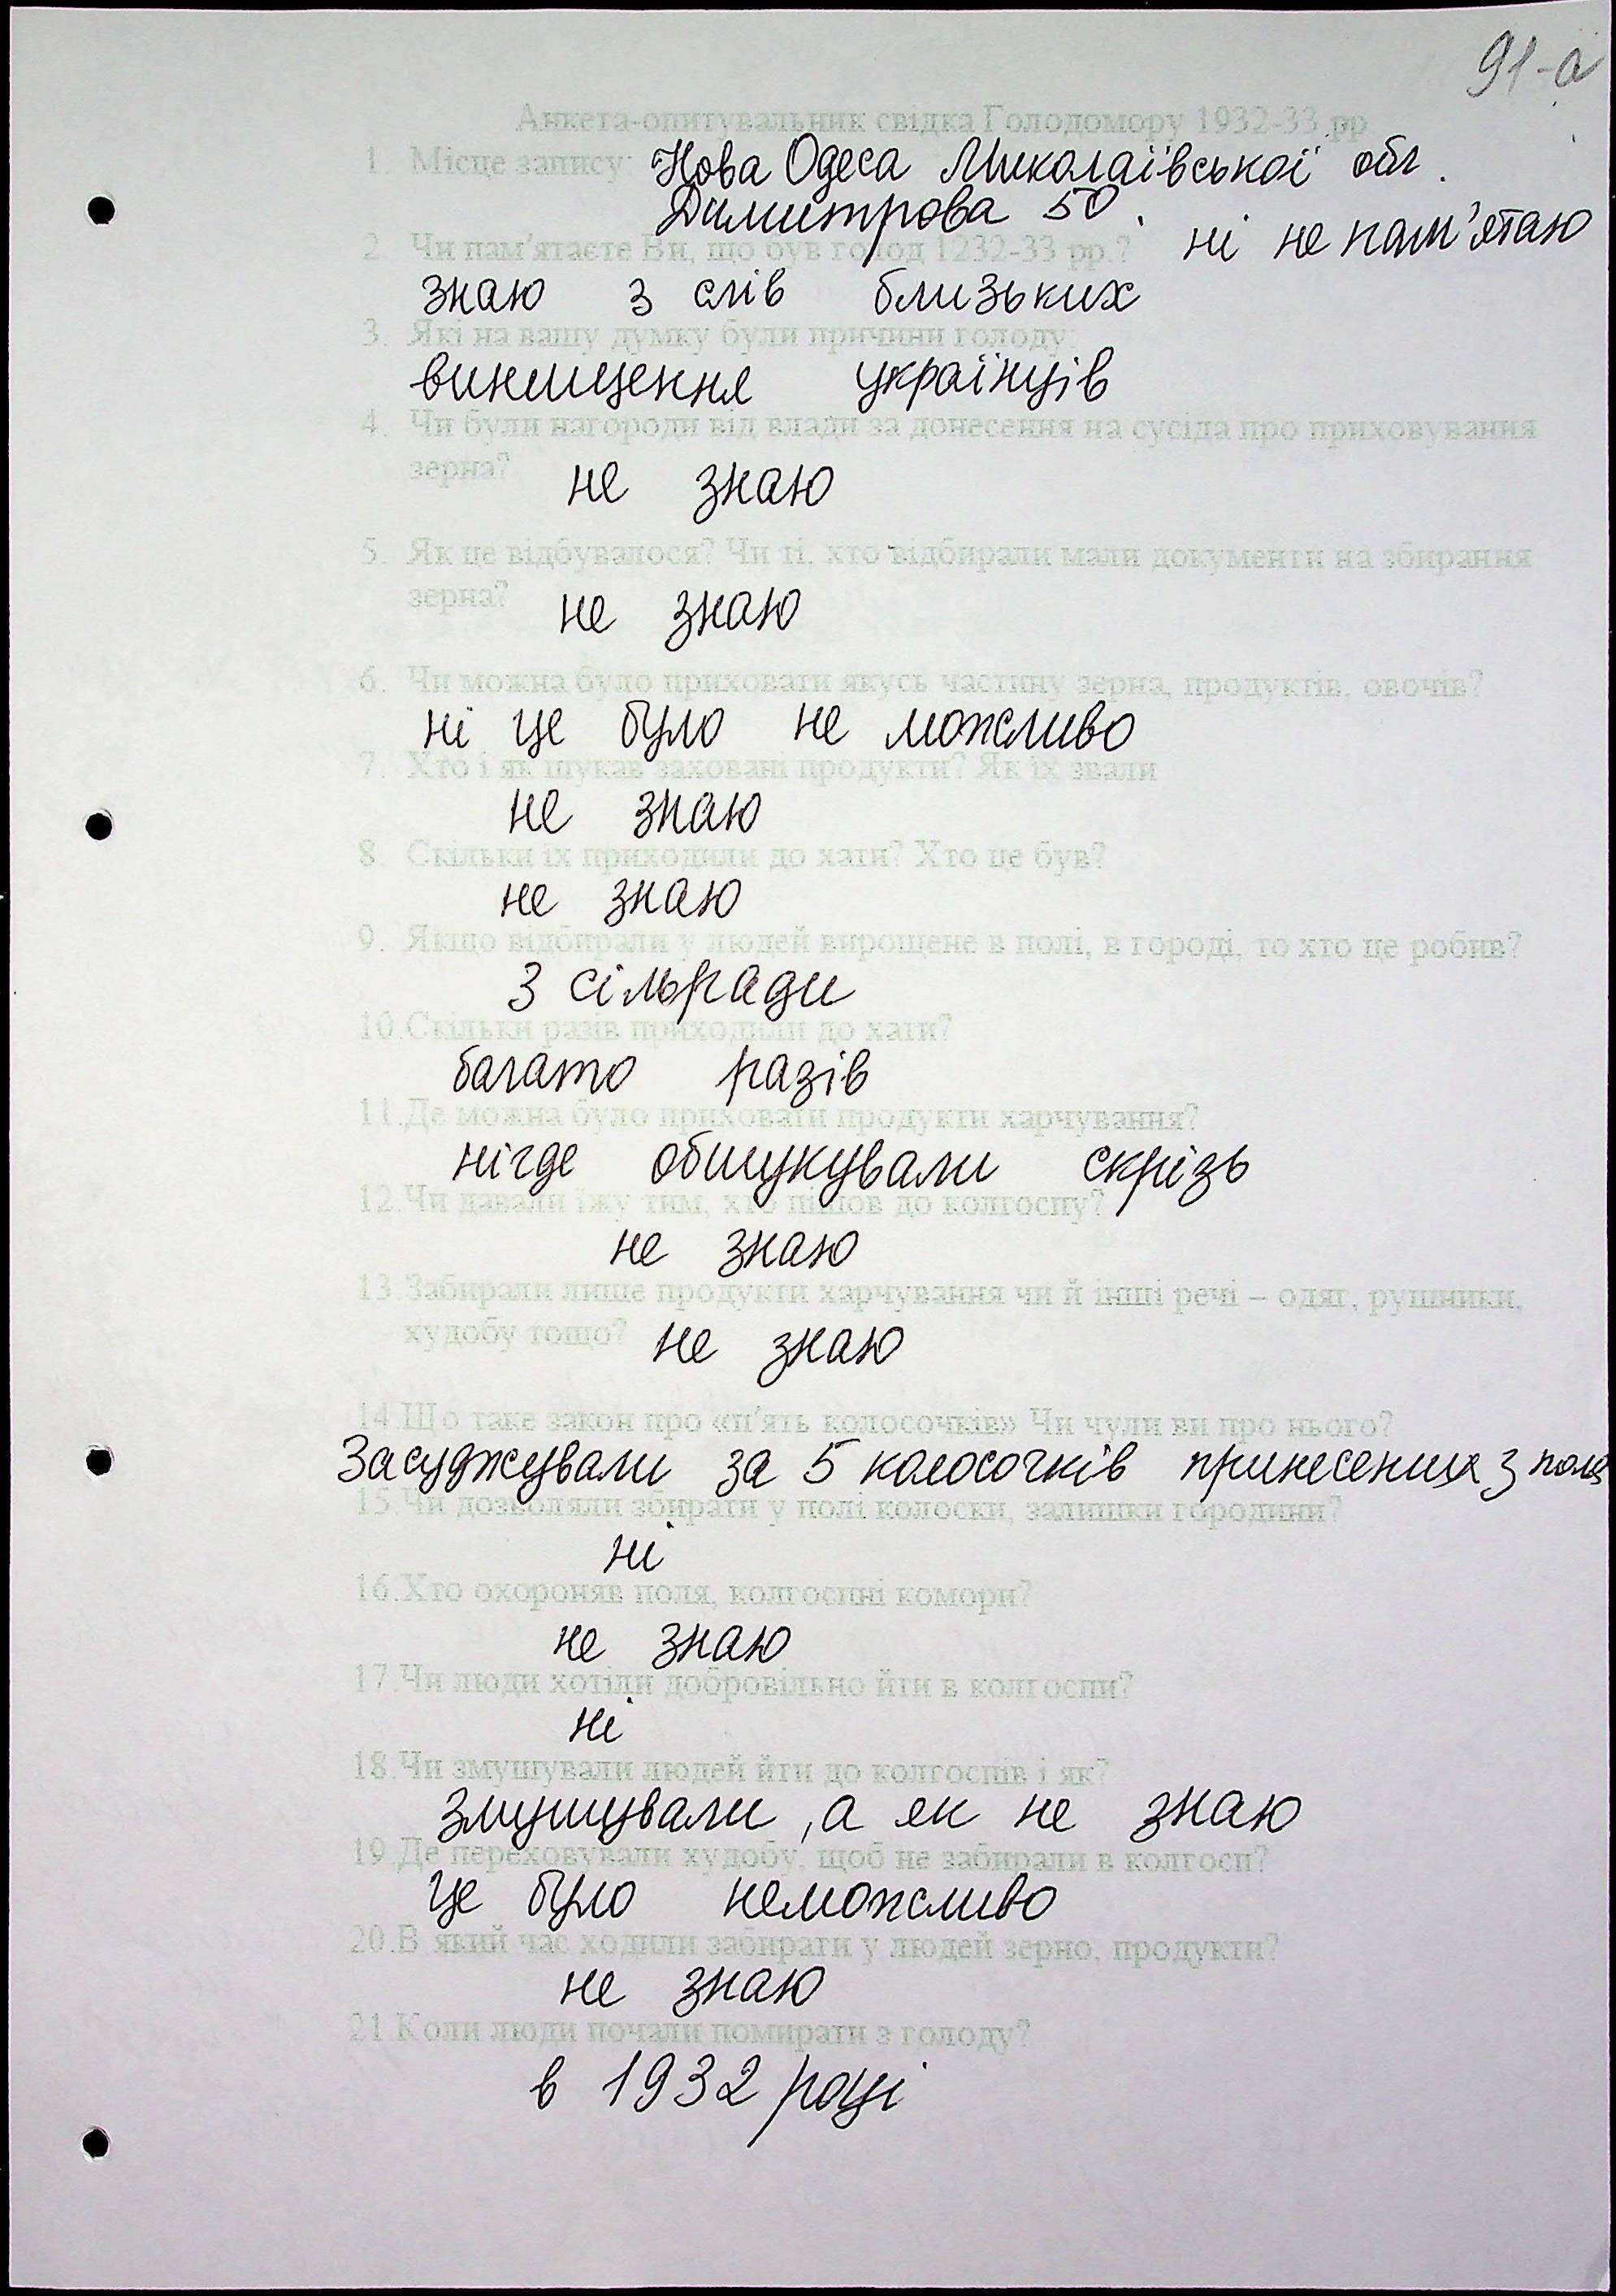 91-а
Анкета-опитувальник свідка Голодомору 1932-33 рр
1. Місце запису: Нова Одеса Миколаївської обл.
Димитрова 50.
2. Чи пам'ятаєте Ви, що був голод 1232-33 рр.? ні не пам'ятаю
знаю з слів близьких
3. Які на вашу думку були причини голоду:
винищення українців
4. Чи були нагороди від влади за донесення на сусіда про приховування
зерна? не знаю
5. Як це відбувалося? Чи ті, хто відбирали мали документи на збирання
зерна? не знаю
6. Чи можна було приховати якусь частину зерна, продуктів, овочів?
ні це було не можливо
7. Хто і як шукав заховані продукти? Як їх звали
не знаю
8. Скільки їх приходили до хати? Хто це був?
не знаю
9. Якщо відбирали у людей вирощене в полі, в городі, то хто це робив?
З сільради
10.Скільки разів приходили до хати?
багато разів
11.Де можна було приховати продукти харчування?
нігде обшукували скрізь
12.Чи давали їжу тим, хто пішов до колгоспу?
не знаю
13.Забирали лише продукти харчування чи й інші речі – одяг, рушники,
худобу тощо? не знаю
14.Що таке закон про «п'ять колосочків» Чи чули ви про нього?
Засуджували за 5 колосочків принесених з поля
15.Чи дозволяли збирати у полі колоски, залишки городини?
ні
16.Хто охороняв поля, колгоспні комори?
не знаю
17.Чи люди хотіли добровільно йти в колгоспи?
ні
18.Чи змушували людей йти до колгоспів і як?
Змушували, а як не знаю
19.Де переховували худобу, щоб не забирали в колгосп?
Це було неможливо
20.В який час ходили забирати у людей зерно, продукти?
не знаю
21.Коли люди почали помирати з голоду?
в 1932 році